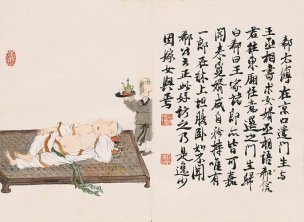 郗太傅在京口遣門生与
王丞相書求女壻丞相語郗信
君往東廂任意選之門生歸
白郗曰王家諸郎亦皆可嘉
聞來覓壻咸自矜持唯有
一郎在牀上坦腹卧如不聞
郗公云正此好訪之乃是逸少
因嫁女與焉